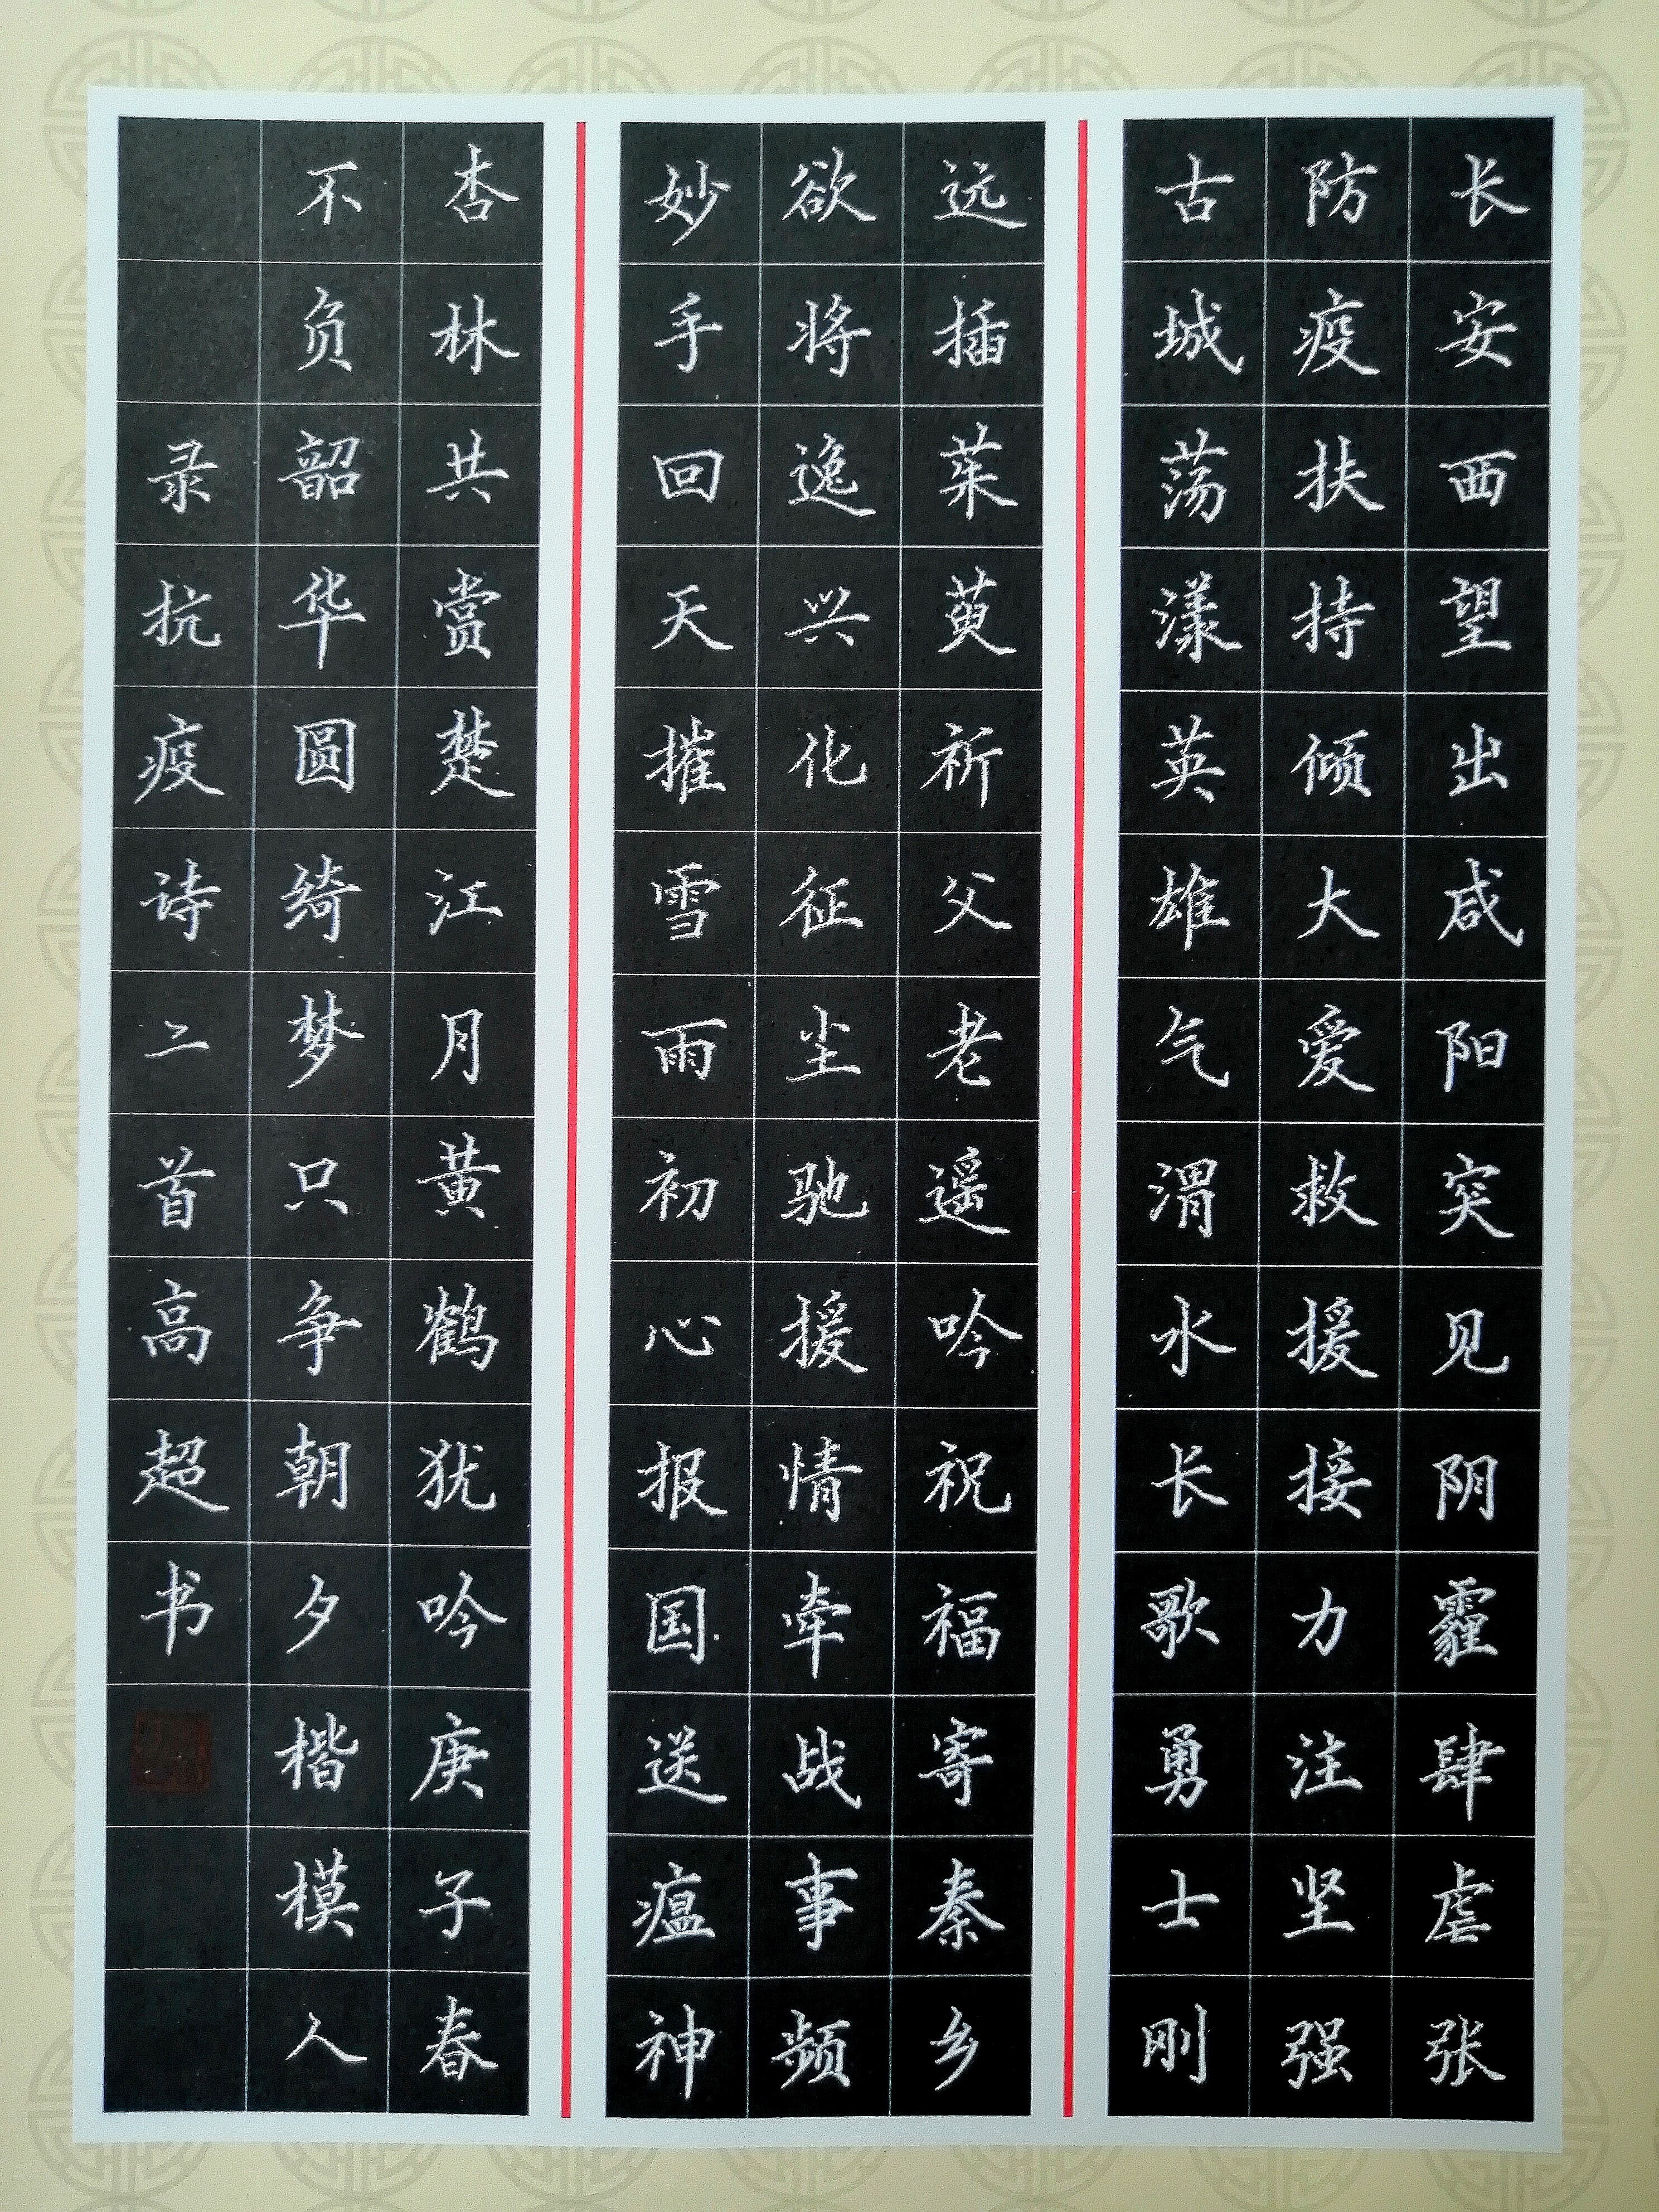 长安西望出咸阳突见阴霾肆虐张
防疫扶持倾大爱救援接力注坚强
古城荡漾英雄气渭水长歌勇士刚
远插茱萸祈父老遥吟祝福寄秦乡
欲将逸兴化征尘驰援情牵战事频
妙手回天摧雪雨初心报国送瘟神
杏林共赏楚江月黄鹤犹吟庚子春
不负韶华圆绮梦只争朝夕楷模人
录抗疫诗二首高超书